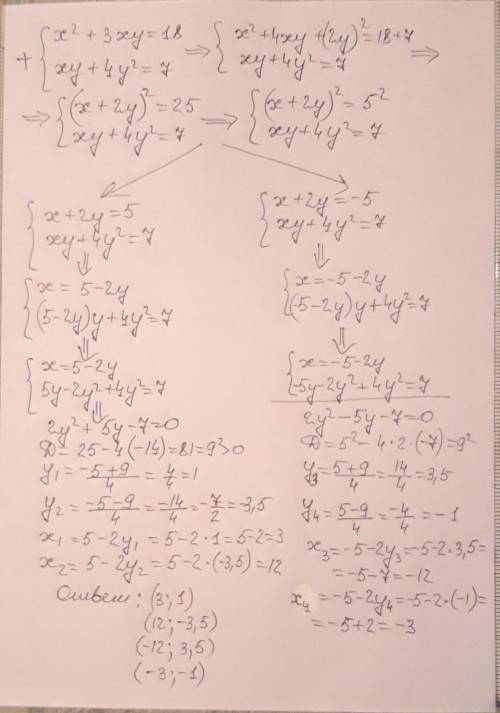 + { x² + 3xy = 18 => { x² + 4xy + (2y)² = 18 + 7 =>
xy + 4y² = 7 xy + 4y² = 7
=> { (x + 2y)² = 25 => { (x + 2y)² = 5²
xy + 4y² = 7 xy + 4y² = 7
{ x + 2y = 5
xy + 4y² = 7
⇓
{ x = 5 - 2y
(5 - 2y)y + 4y² = 7
⇓
{ x = 5 - 2y
5y - 2y² + 4y² = 7
⇓
2y² + 5y - 7 = 0
D = 25 - 4(-14) = 81 = 9² > 0
y₁ = (-5+9)/4 = 4/4 = 1
y₂ = (-5-9)/4 = -14/4 = -7/2 = -3,5
x₁ = 5 - 2y₁ = 5 - 2·1 = 5 - 2 = 3
x₂ = 5 - 2y₂ = 5 - 2·(-3,5) = 12
Ответ: (3; 1)
(12; -3,5)
(-12; 3,5)
(-3; -1)
{ x + 2y = -5
xy + 4y² = 7
⇓
{ x = -5 - 2y
(-5 - 2y)y + 4y² = 7
⇓
{ x = -5 - 2y
-5y - 2y² + 4y² = 7
2y² - 5y - 7 = 0
D = 5² - 4·2·(-7) = 9²
y₃ = (5+9)/4 = 14/4 = 3,5
y₄ = (5-9)/4 = -4/4 = -1
x₃ = -5 - 2y₃ = -5 - 2·3,5 =
= -5 - 7 = -12
x₄ = -5 - 2y₄ = -5 - 2·(-1) =
= -5 + 2 = -3